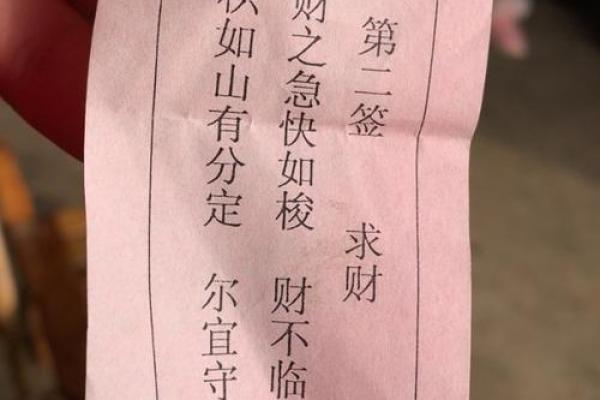 第二签 求财
财之急快如梭 财不临
如山有分定 尔宜守